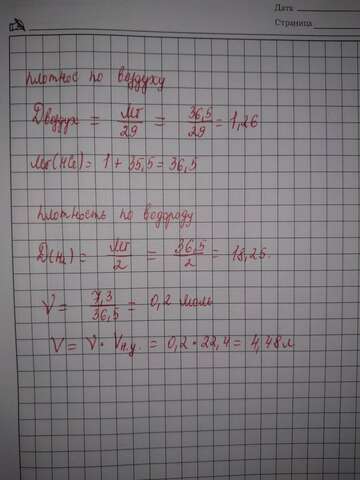 Дата
Страница
плотнос по воздуху
Dвоздух = Mr/29 = 36,5/29 = 1,26
Mr(HCl) = 1 + 35,5 = 36,5
плотность по водороду
D(H₂) = Mr/2 = 36,5/2 = 18,25.
V = 7,3/36,5 = 0,2 моль
V = V · Vн.у. = 0,2 · 22,4 = 4,48 л